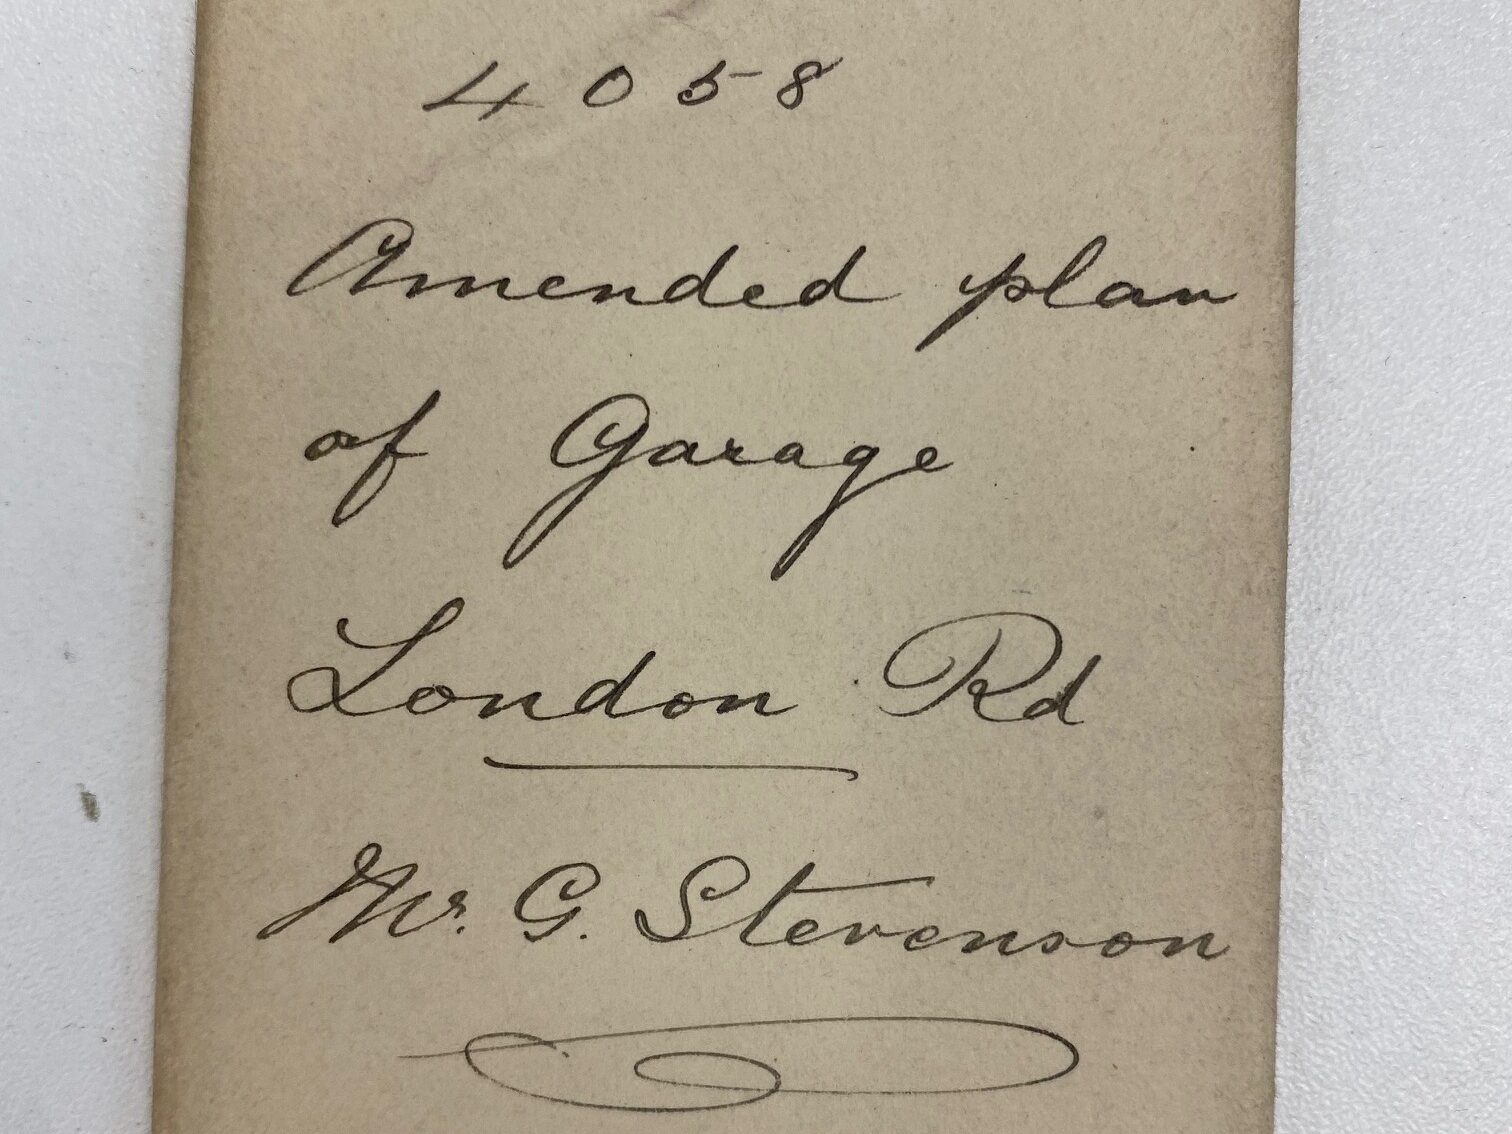 4058
Amended plan
of Garage
London Rd
Mr. G. Stevenson